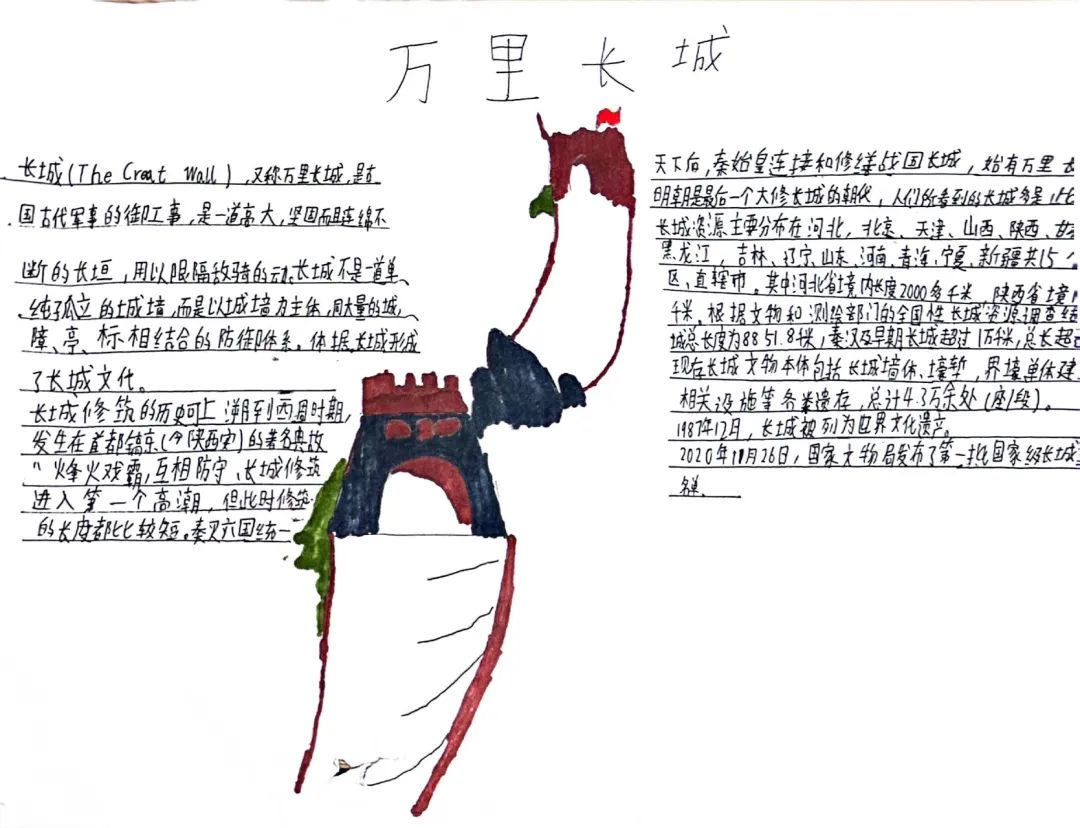 万里长城
长城(The Creat Wall),又称万里长城,是
国古代军事的御工事,是一道高大,坚固而且连绵不
断的长垣,用以限隔敌骑的动.长城不是一道单
纯孤立的城墙,而是以城墙为主体,同大量的城、
障、亭、标相结合的防御体系。体据,长城形成
了长城文化。
长城修筑的历史可上溯到西周时期,
发生在首都镐京(今陕西安)的著名典故
"烽火戏霸,互相防守、长城修筑
进入第一个高潮,但此时修筑
的长度都比较短。秦灭六国统一
天下后,秦始皇连接和修缮战国长城,始有万里
明朝是最后一个大修长城的朝代,人们所看到的长城多是此
长城资源主要分布在河北,北京、天津、山西、陕西、甘
黑龙江,吉林、辽宁、山东、河南、青海、宁夏、新疆共15个
区,直辖市。其中河北省境内长度2000多千米,陕西省境
千米。根据文物和测绘部门的全国性长城资源调查结
城总长度为8851.8米,秦汉及早期长城超过1万米,总长超
现存长城文物本体包括长城墙体、壕堑,界壕单体建
相关设施等各类遗存,总计4.3万余处(座/段)。
1987年12月,长城被列为世界文化遗产。
2020年11月26日,国家文物局发布了第一批国家级长城
名单.